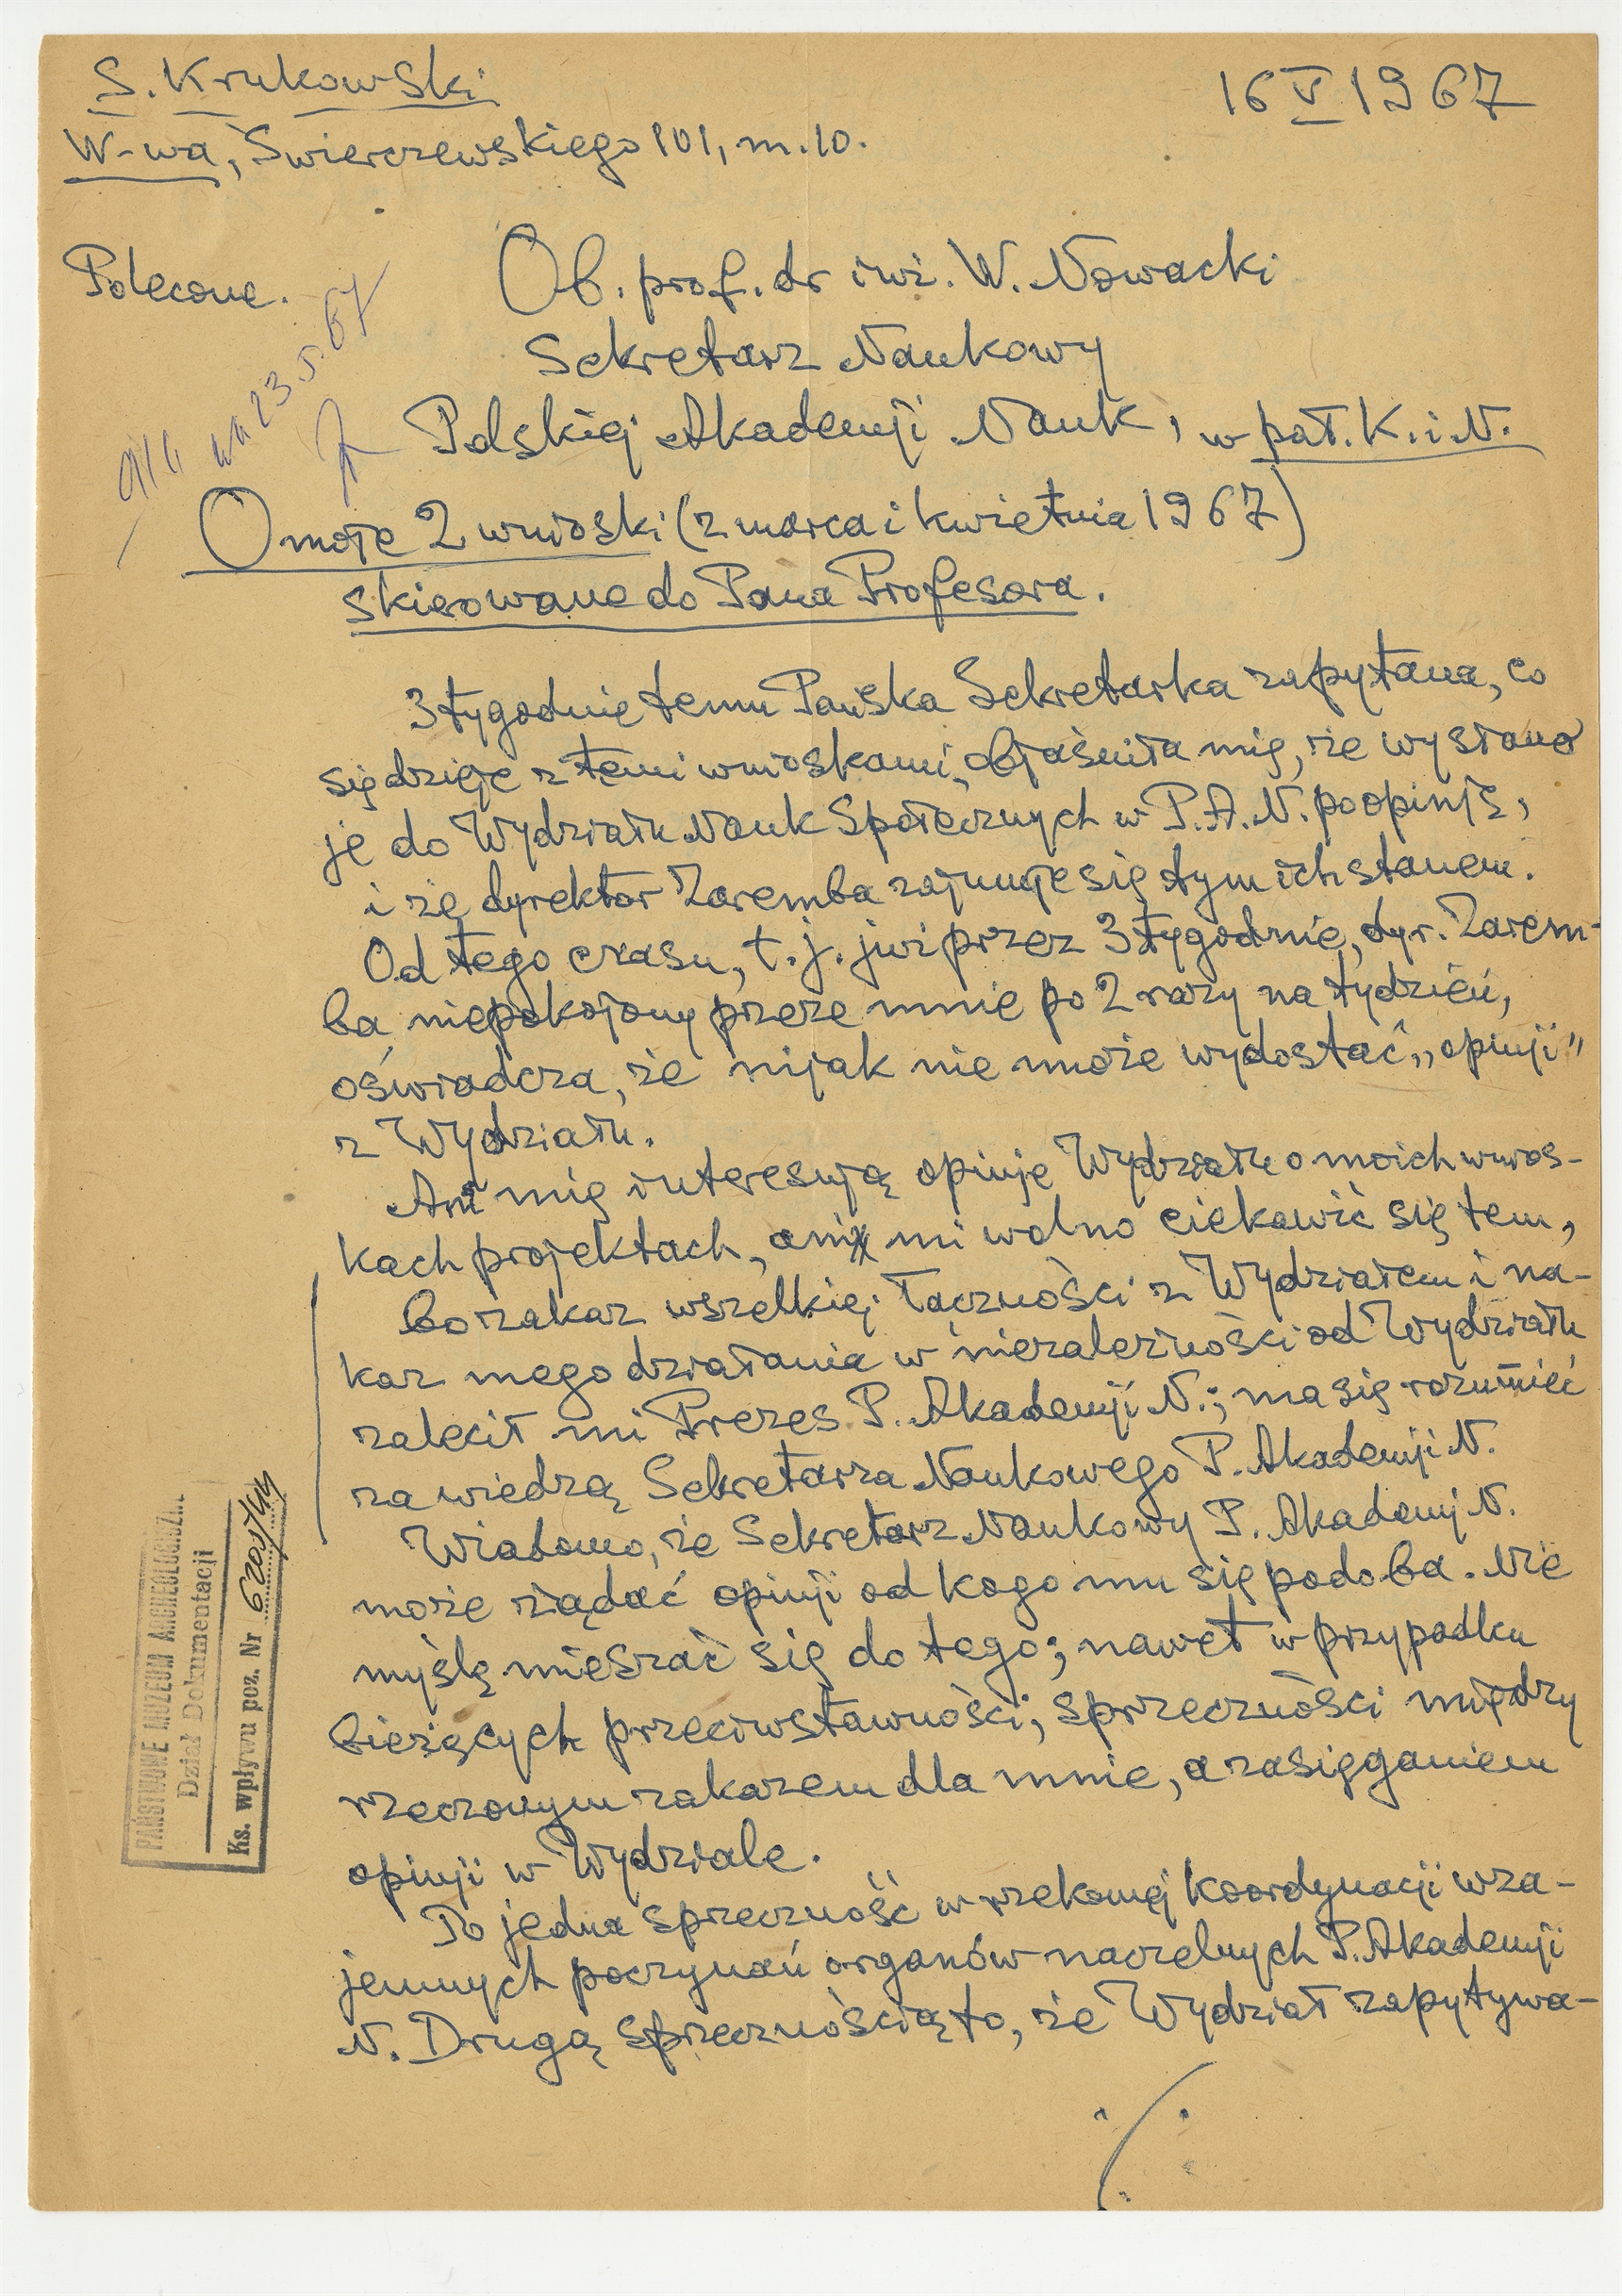 S. Krukowski
16 V 1967
W-wa, Świerczewskiego 101, m. 10.
Polecone.
Ob. prof. dr inż. W. Nowacki
Sekretarz Naukowy
Polskiej Akademji Nauk, w pał. K. i N.
23.5.67
O moje 2 wnioski (z marca i kwietnia 1967)
skierowane do Pana Profesora.
3 tygodnie temu Pańska Sekretarka zapytana, co
się dzieje z temi wnioskami, objaśniła mię, że wysłano
je do Wydziału Nauk Społecznych w P.A.N. po opinję,
i że dyrektor Zaremba zajmuje się tym ich stanem.
Od tego czasu, t.j. już przez 3 tygodnie, dyr. Zarem-
ba niepokojony przeze mnie po 2 razy na tydzień,
oświadcza, że nijak nie może wydostać „opinji"
z Wydziału.
Ani mię interesują opinje Wydziału o moich wnios-
kach projektach, ani mi wolno ciekawić się tem,
bo zakaz wszelkiej łączności z Wydziałem i na-
kaz mego działania w niezależności od Wydziału
zalecił mi Prezes P. Akademji N.; ma się rozumieć
za wiedzą Sekretarza Naukowego P. Akademji N.
Wiadomo, że Sekretarz Naukowy P. Akademj N.
może żądać opinji od kogo mu się podoba. Nie
myślę mieszać się do tego; nawet w przypadku
bieżących przeciwstawności, sprzeczności między
rzeczonym zakazem dla mnie, a zasięganiem
opinji w Wydziale.
To jedna sprzeczność w rzekomej koordynacji wza-
jemnych poczynań organów naczelnych P. Akademji
N. Drugą sprzecznością to, że Wydział zapytywa-
./.
PAŃSTWOWE MUZEUM ARCHEOLOGICZN
Dział Dokumentacji
Ks. wpływu poz. Nr 6 zeszłny